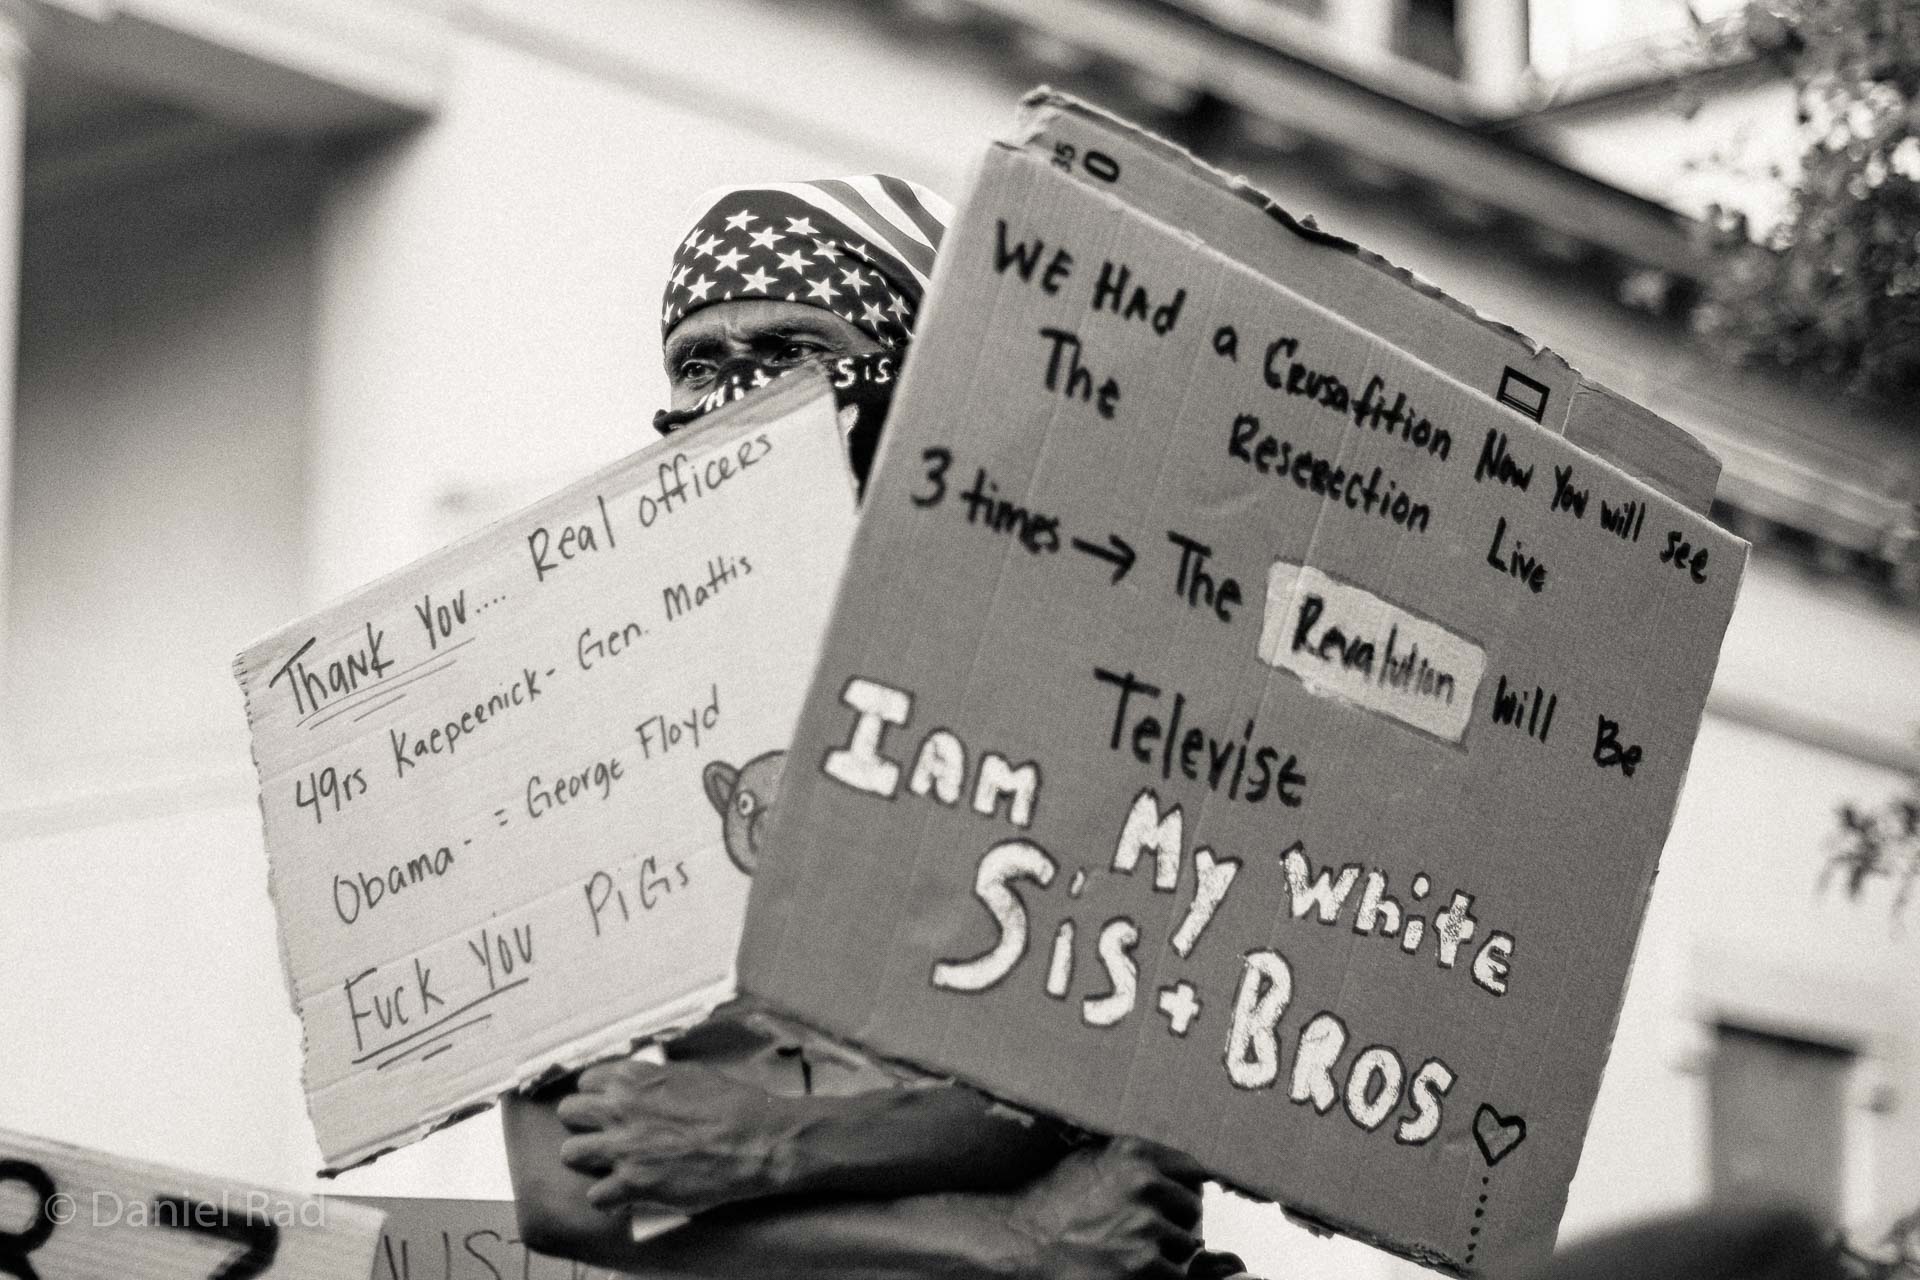 THANK YOU.... Real officers
49rs Kaepeenick - Gen. Mattis
Obama - = George Floyd
FUCK YOU PiGs
SiS
35 0
WE HAd a Crusafition Now You will see
The Reserection Live
3 times → The Revalution will Be
Televise
I am My White
Sis + BROS
© Daniel Rad